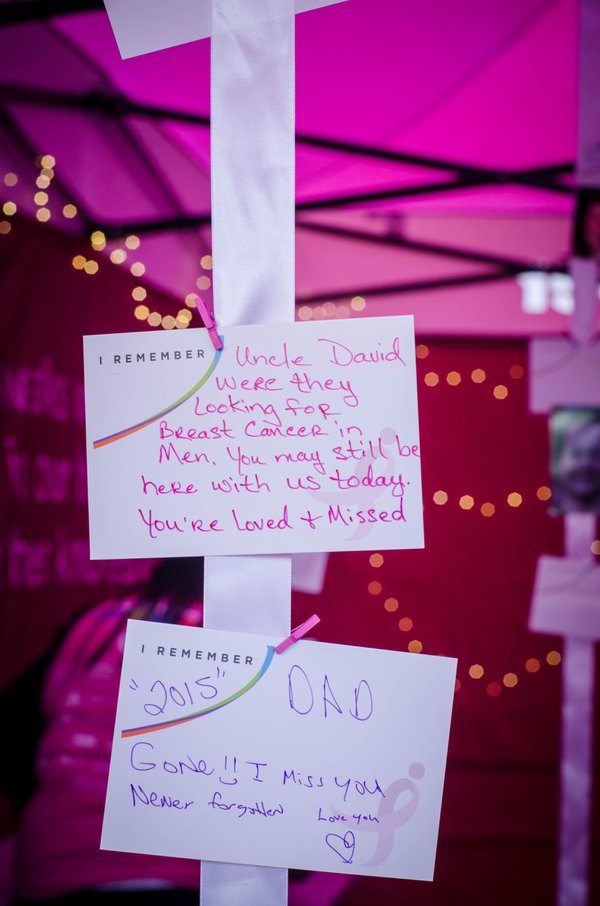 I REMEMBER
Uncle David
were they
Looking for
Breast Cancer in
Men, you may still be
here with us today.
You're Loved + Missed
I REMEMBER
"2015" DAD
Gone!! I Miss you
Never forgotten Love you